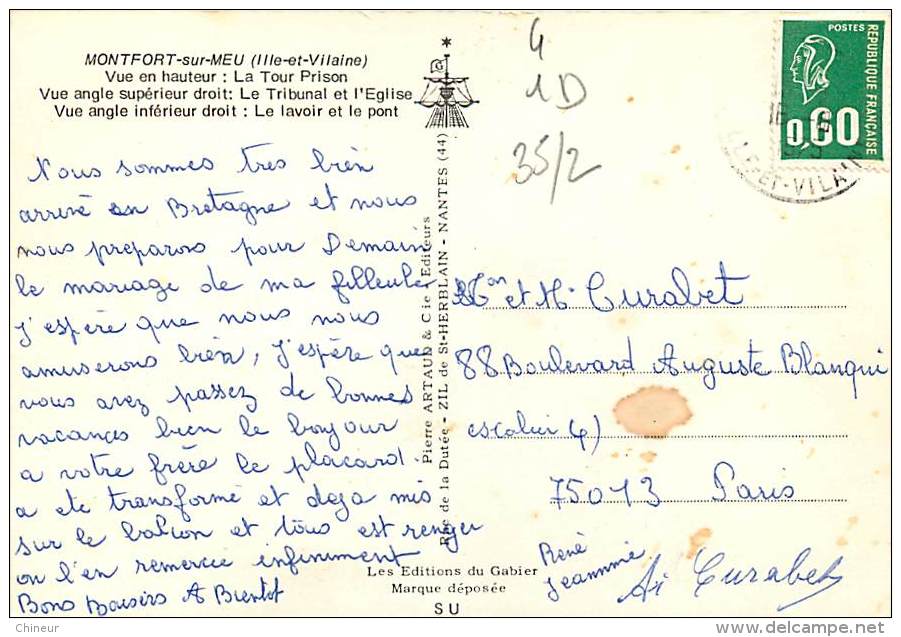 MONTFORT-sur-MEU (Ille-et-Vilaine)
Vue en hauteur : La Tour Prison
Vue angle supérieur droit: Le Tribunal et l'Eglise
Vue angle inférieur droit : Le lavoir et le pont
Nous sommes tres bien
arrivé en Bretagne et nous
nous preparons pour Demain
le mariage de ma filleule
J'espère que nous nous
amuserons bien, J'espère que
vous avez passez de bonnes
vacances bien le bonjour
a votre frère le placard
a ete transformé et deja mis
sur le balcon et tous est renger
on l'en remercie infiniment
Bons Baisers A Bientot
Pierre ARTAUD & Cie Editeurs
Rue de la Dutée - ZIL de St-HERBLAIN - NANTES (44)
4
1D
35/2
POSTES
REPUBLIQUE FRANÇAISE
0,60
ILLE-ET-VILAINE
et M. Curabet
88 Boulevard Auguste Blanqui
escalier 4)
75013 Paris
René
Jeannine
Curabet
Les Editions du Gabier
Marque déposée
SU
Chineur
http://www.delcampe.net